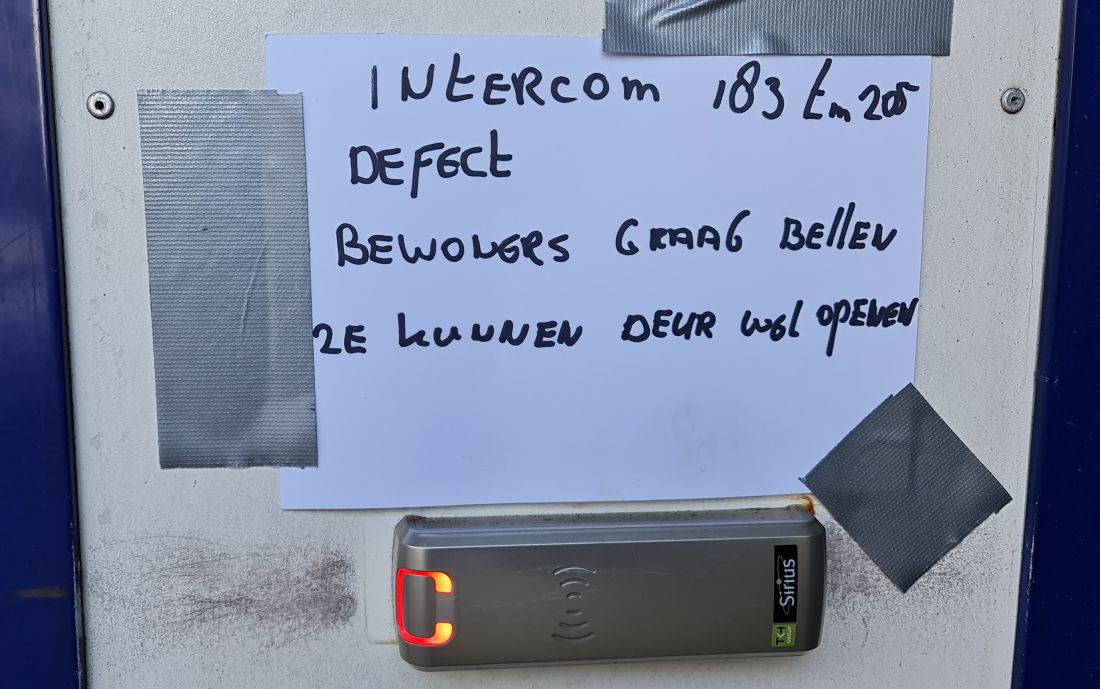 INTERCOM 183 tm 205
DEFECT
BEWONERS GRAAG BELLEN
ZE KUNNEN DEUR WEL OPENEN
Sirius
TKH
GROUP